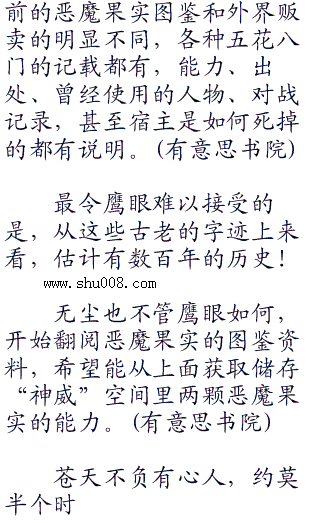 前的恶魔果实图鉴和外界贩
卖的明显不同，各种五花八
门的记载都有，能力、出
处、曾经使用的人物、对战
记录，甚至宿主是如何死掉
的都有说明。(有意思书院)
最令鹰眼难以接受的
是，从这些古老的字迹上来
看，估计有数百年的历史！
www.shu008.com
无尘也不管鹰眼如何，
开始翻阅恶魔果实的图鉴资
料，希望能从上面获取储存
“神威”空间里两颗恶魔果
实的能力。(有意思书院)
苍天不负有心人，约莫
半个时